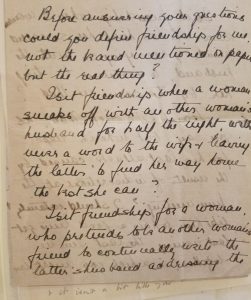 Before answering your questions
could you define friendship for me,
not the kind mentioned on paper
but the real thing?
Is it friendship when a woman
sneaks off with another woman's
husband for half the night with
never a word to the wife & leaving
the latter to find her way home
the best she can?
Is it friendship for a woman,
who pretends to be another womans
friend to continually write the
latter's husband addressing the